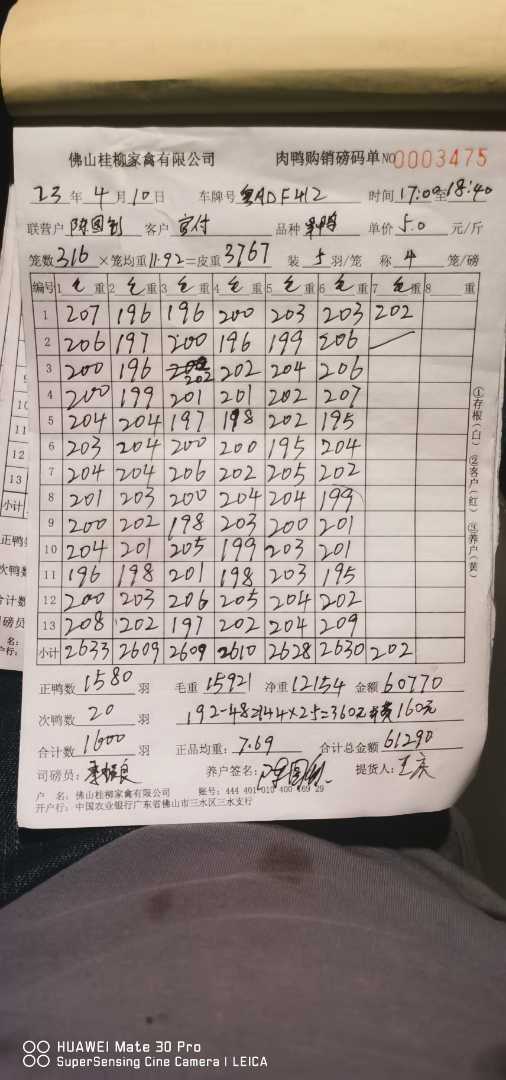 佛山桂柳家禽有限公司 肉鸭购销磅码单 NO 0003475
23年4月10日 车牌号 粤ADF412 时间 17:00至18:40
联营户 客户 品种 单价 5.0 元/斤
笼数 316 ×笼均重 11.92=皮重 3767 装 5 羽/笼 称 4 笼/磅
编号 1 毛重 2 毛重 3 毛重 4 毛重 5 毛重 6 毛重 7 毛重 8 重
1 207 196 196 200 203 203 202
2 206 197 200 196 199 206
3 200 196 202 202 204 206
4 200 199 201 201 202 207
5 204 204 197 198 202 195
6 203 204 200 200 195 204
7 204 204 206 202 205 202
8 201 203 200 204 204 199
9 200 202 198 203 200 201
10 204 201 205 199 203 201
11 196 198 201 198 203 195
12 200 203 206 205 204 202
13 208 202 197 202 204 209
小计 2633 2609 2609 2610 2628 2630 202
①存根(白) ②客户(红) ③养户(黄)
正鸭数 1580 羽 毛重 15921 净重 12154 金额 60770
次鸭数 20 羽 192-48=144×2.5=360元 160元
合计数 1600 羽 正品均重: 7.69 合计总金额 61290
司磅员: 养户签名: 提货人:
户 名: 佛山桂柳家禽有限公司 账号: 444 401 010 400 169 29
开户行: 中国农业银行广东省佛山市三水区三水支行
10
11
12
13
小计
正鸭
次鸭
合计
磅员
HUAWEI Mate 30 Pro
SuperSensing Cine Camera | LEICA